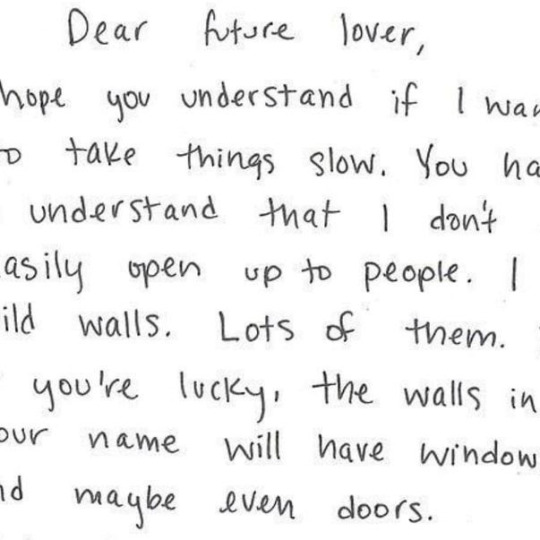 Dear future lover,
hope you understand if I wan
o take things slow. You ha
understand that I don't
asily open up to people. I
ild walls. Lots of them.
you're lucky, the walls in
our name will have window
nd maybe even doors.